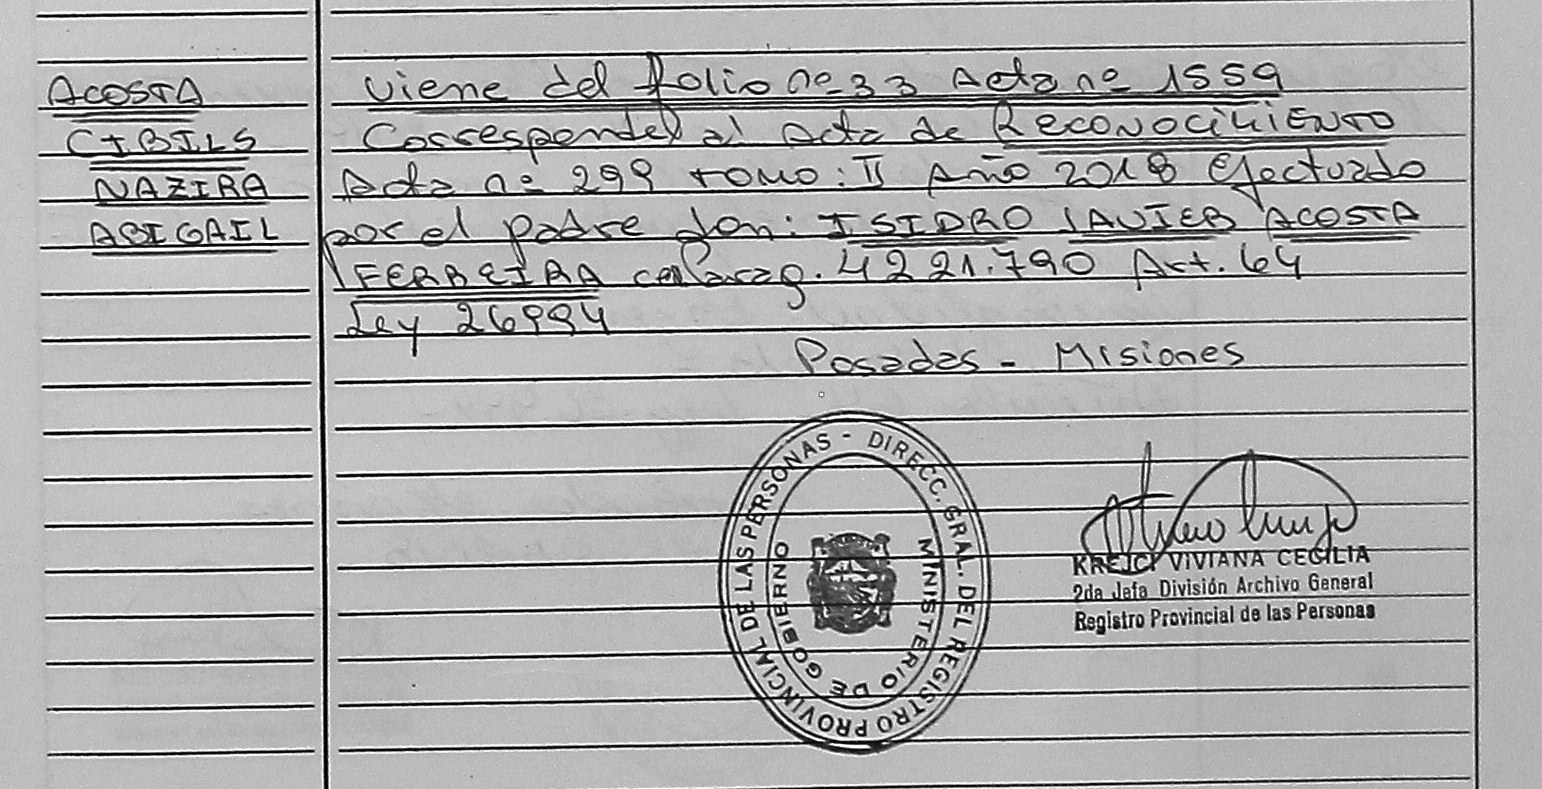 ACOSTA
CIBILS
NAZIRA
ABIGAIL
Viene del folio nº 33 Acta nº 1559
Corresponde al Acta de RECONOCIMIENTO
Acta nº 299 tomo: II Año 2018 efectuado
por el padre don: ISIDRO JAVIER ACOSTA
FERREIRA ced parag. 4221.790 Art. 64
Ley 26994
Posadas - Misiones
DIRECC. GRAL. DEL REGISTRO PROVINCIAL DE LAS PERSONAS -
MINISTERIO DE GOBIERNO
KREJCI VIVIANA CECILIA
2da Jefa División Archivo General
Registro Provincial de las Personas